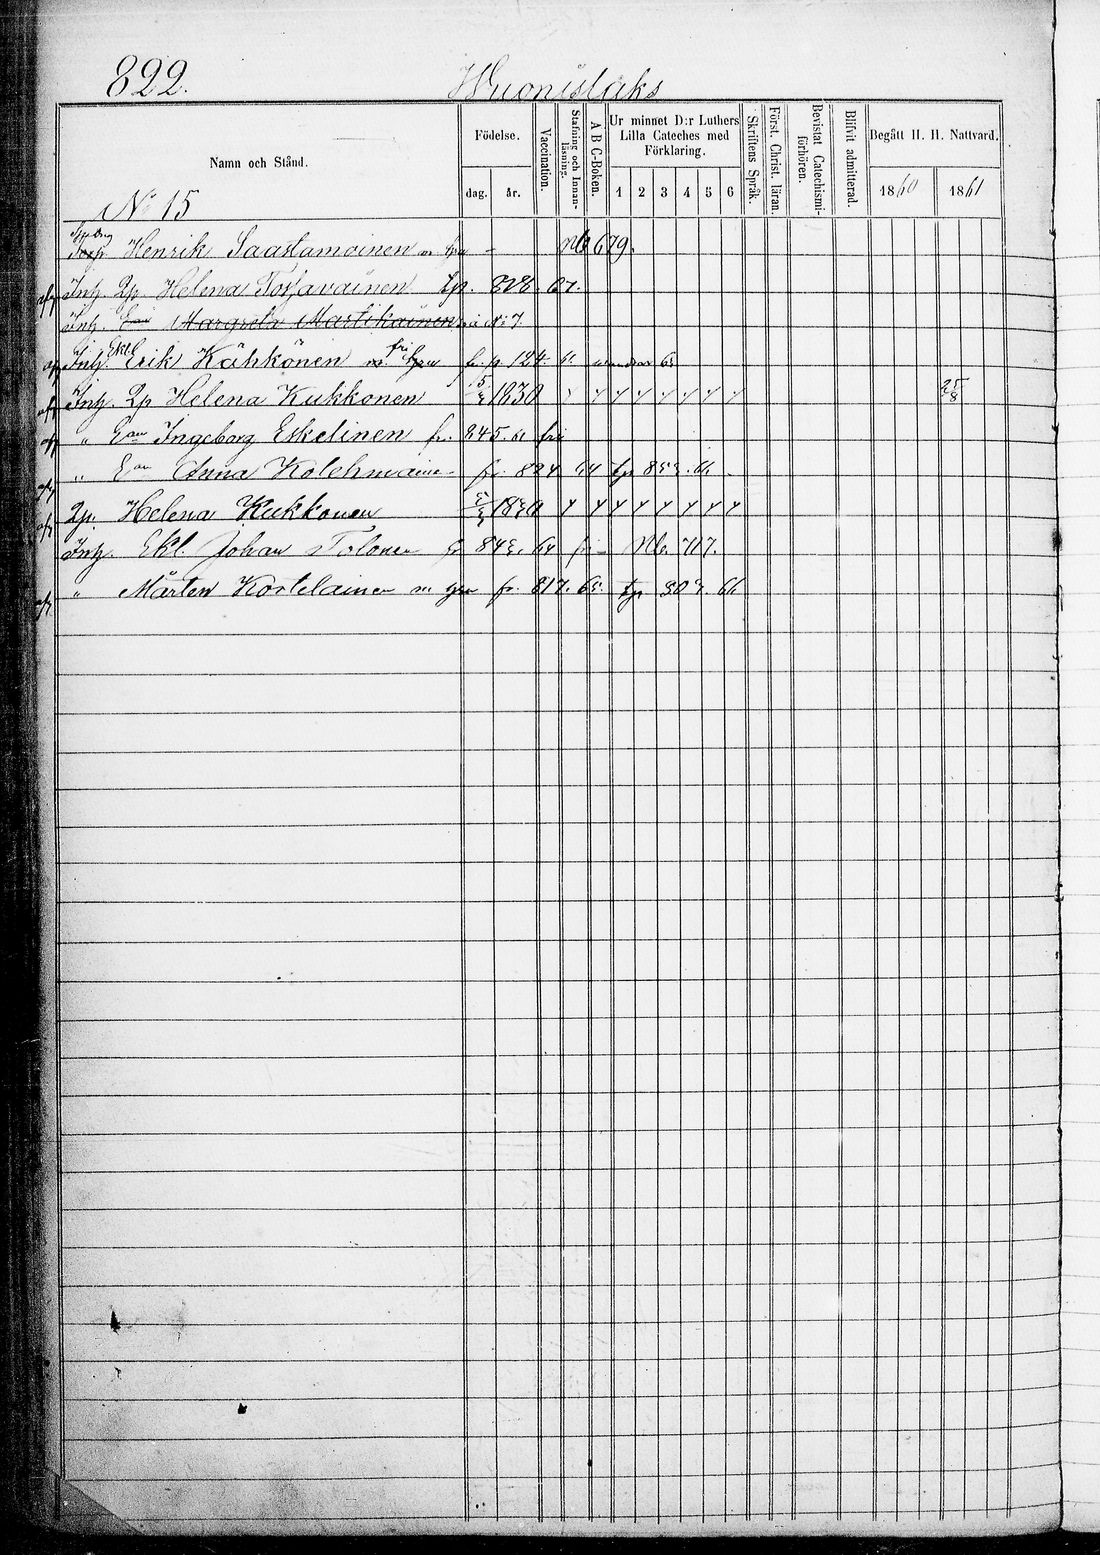 822.
Wuonislaks
Namn och Stånd.
Födelse.
dag.
år.
Vaccination.
Stafning och Innanläsning.
A B C-Boken.
Ur minnet D:r Luthers Lilla Cateches med Förklaring.
1 2 3 4 5 6
Skriftens Språk.
Först. Christ. läran.
Bevistat Catechismiförhören.
Blifvit admitterad.
Begått H. H. Nattvard.
1860
1861
No 15
Henrik Saastamoinen - No 679.
Inh. Qp. Helena Torfavainen tp. 828.
Inh. Margreta Martikainen No 7
Inh. Ekl Erik Kähkönen fr p 124
Inh. Qp Helena Kukkonen 5/3 1830 25/8
" Ean Ingeborg Eskelinen fr. 245. 61
" Ean Anna Kolehmainen fr. 824 64
Qp. Helena Kukkonen 5/3 1830
Inh. Ekl. Johan Tolonen fr 64 No. 717.
" Mårten Kortelainen fr. 817. 65. 66